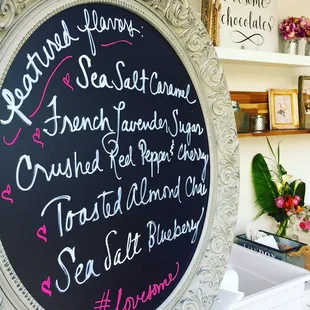 featured flavors:
Sea Salt Caramel
French Lavender Sugar
Crushed Red Pepper & Cherry
Toasted Almond Chai
Sea Salt Blueberry
#Lovesome
chocolates
LONDON